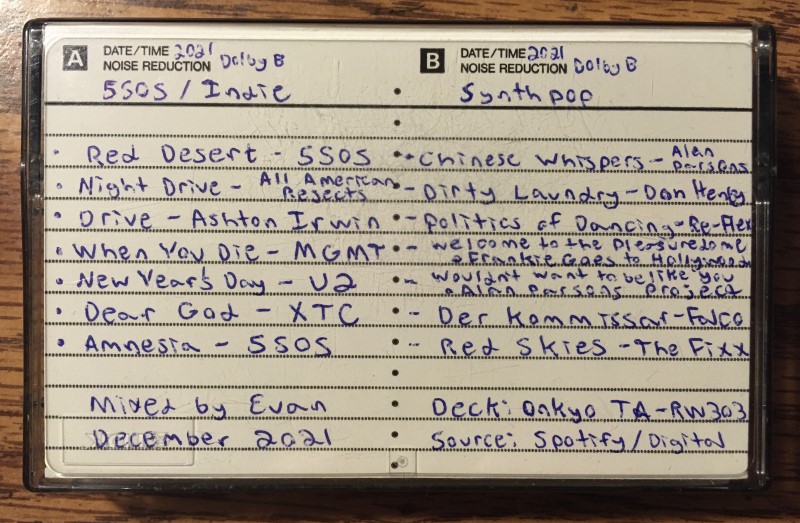 A DATE/TIME 2021
NOISE REDUCTION Dolby B
5SOS / Indie
• Red Desert - 5SOS
• Night Drive - All American Rejects
• Drive - Ashton Irwin
• When You Die - MGMT
• New Year's Day - U2
• Dear God - XTC
• Amnesia - 5SOS
Mixed by Evan
December 2021
B DATE/TIME 2021
NOISE REDUCTION Dolby B
Synthpop
- Chinese Whispers - Alan Parsons
- Dirty Laundry - Don Henley
- Politics of Dancing - Re-Flex
- Welcome to the Pleasuredome
• Frankie Goes to Hollywood
- Wouldnt want to be like you
• Alan Parsons Project
- Der Kommissar - Falco
- Red Skies - The Fixx
Deck: Onkyo TA-RW303
Source: Spotify/Digital